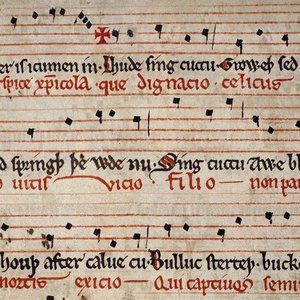 er is icumen in. Lhude sing cuccu. Groweþ sed
spice xp̄icola. que dignacio. celicus
d springþ þe wde nu. Sing cuccu Awe bl
o uitis vicio. filio non pa
houþ after calue cu. Bulluc sterteþ. bucke
mortis exicio Qui captiuos semi